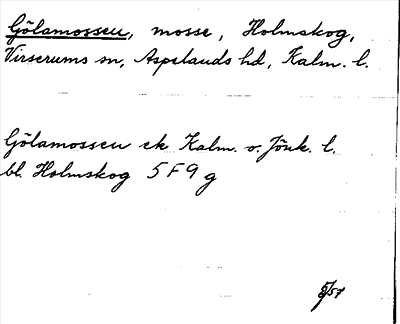 Gölamossen, mosse, Holmskog,
Virserums sn, Aspelands hd, Kalm. l.
Gölamossen ek Kalm. o. Jönk. l.
bl. Holmskog 5 F 9 g